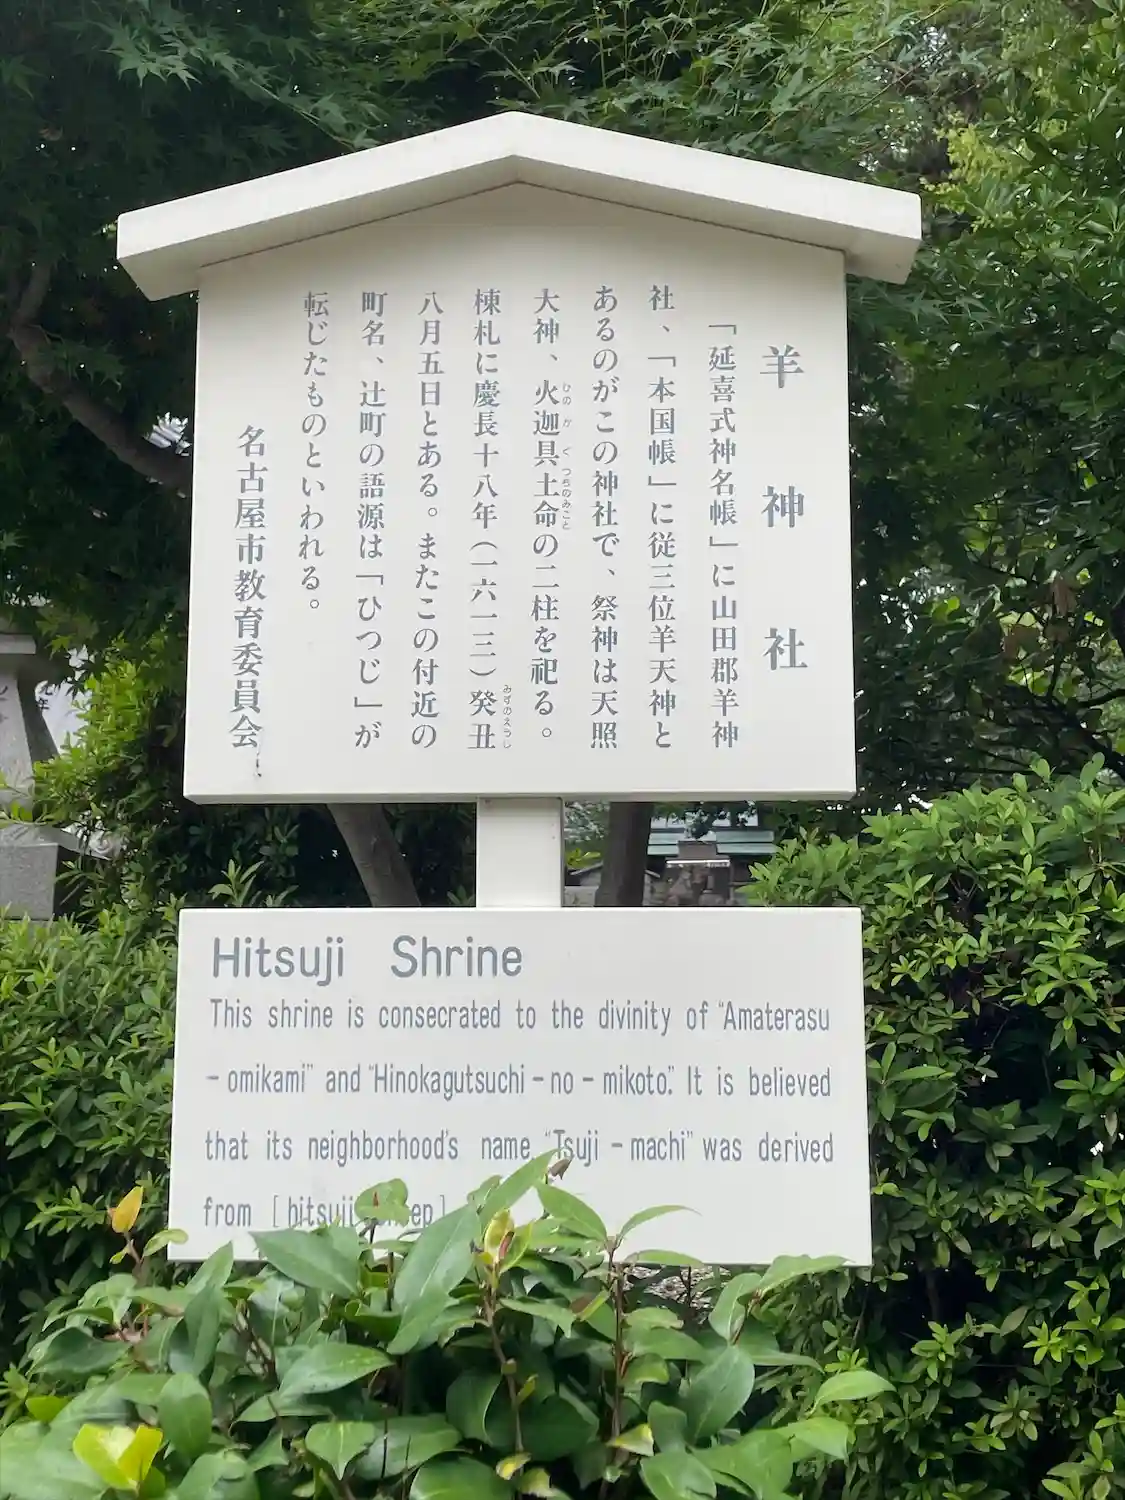 羊神社
「延喜式神名帳」に山田郡羊神
社、「本国帳」に従三位羊天神と
あるのがこの神社で、祭神は天照
大神、火迦具土命の二柱を祀る。
ひのかぐつちのみこと
棟札に慶長十八年(一六一三)癸丑
みずのえうし
八月五日とある。またこの付近の
町名、辻町の語源は「ひつじ」が
転じたものといわれる。
名古屋市教育委員会
Hitsuji Shrine
This shrine is consecrated to the divinity of “Amaterasu
-omikami” and “Hinokagutsuchi-no-mikoto.” It is believed
that its neighborhood's name “Tsuji-machi” was derived
from [hitsuji